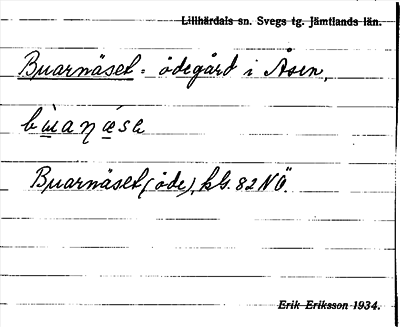 Lillhärdals sn. Svegs tg. Jämtlands län.
Buarnäset = ödegård i Åsen,
Buarnäset (öde), kbl. 82 NÖ.
Erik Eriksson 1934.